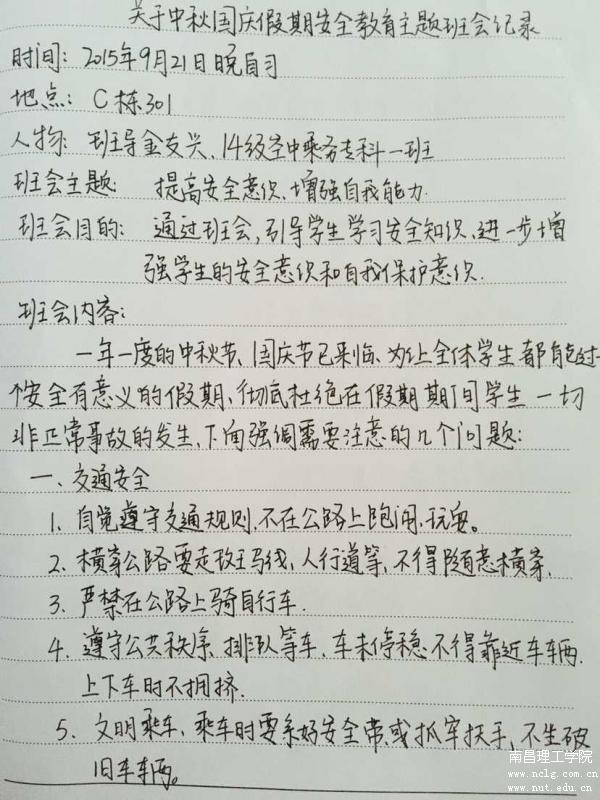 关于中秋国庆假期安全教育主题班会记录
时间：2015年9月21日晚自习
地点：C栋301
人物：班导金友兴、14级空中乘务专科一班
班会主题：提高安全意识、增强自我能力.
班会目的：通过班会，引导学生学习安全知识、进一步增
强学生的安全意识和自我保护意识.
班会内容：
一年一度的中秋节、国庆节已来临、为让全体学生都能过一
个安全有意义的假期、彻底杜绝在假期期间学生一切
非正常事故的发生、下面强调需要注意的几个问题：
一、交通安全
1. 自觉遵守交通规则、不在公路上跑闹、玩耍。
2. 横穿公路要走斑马线，人行道等，不得随意横穿.
3. 严禁在公路上骑自行车.
4. 遵守公共秩序、排队等车、车未停稳不得靠近车辆.
上下车时不拥挤.
5. 文明乘车、乘车时要系好安全带、或抓牢扶手、不坐破
旧车车辆。
南昌理工学院
www.nclg.com.cn
www.nut.edu.cn